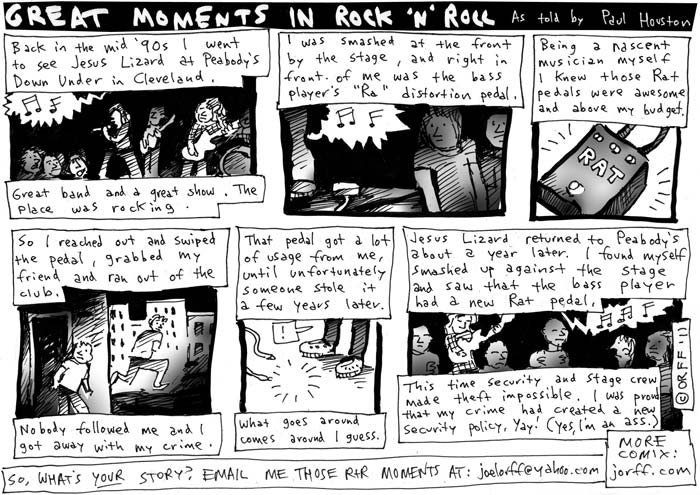 GREAT MOMENTS IN ROCK 'N' ROLL As told by Paul Houston
Back in the mid '90s I went
to see Jesus Lizard at Peabody's
Down Under in Cleveland.
Great band and a great show. The
place was rocking.
I was smashed at the front
by the stage, and right in
front of me was the bass
player's "Ra" distortion pedal.
Being a nascent
musician myself
I knew those Rat
pedals were awesome
and above my budget.
RAT
So I reached out and swiped
the pedal, grabbed my
friend and ran out of the
club.
Nobody followed me and I
got away with my crime.
That pedal got a lot
of usage from me,
until unfortunately
someone stole it
a few years later.
What goes around
comes around I guess.
Jesus Lizard returned to Peabody's
about a year later. I found myself
smashed up against the stage
and saw that the bass player
had a new Rat pedal.
This time security and stage crew
made theft impossible. I was proud
that my crime had created a new
security policy, Yay! (Yes, I'm an ass.)
© ORFF '11
SO, WHAT'S YOUR STORY? EMAIL ME THOSE R+R MOMENTS AT: joelorff@yahoo.com
MORE
COMIX:
jorff.com